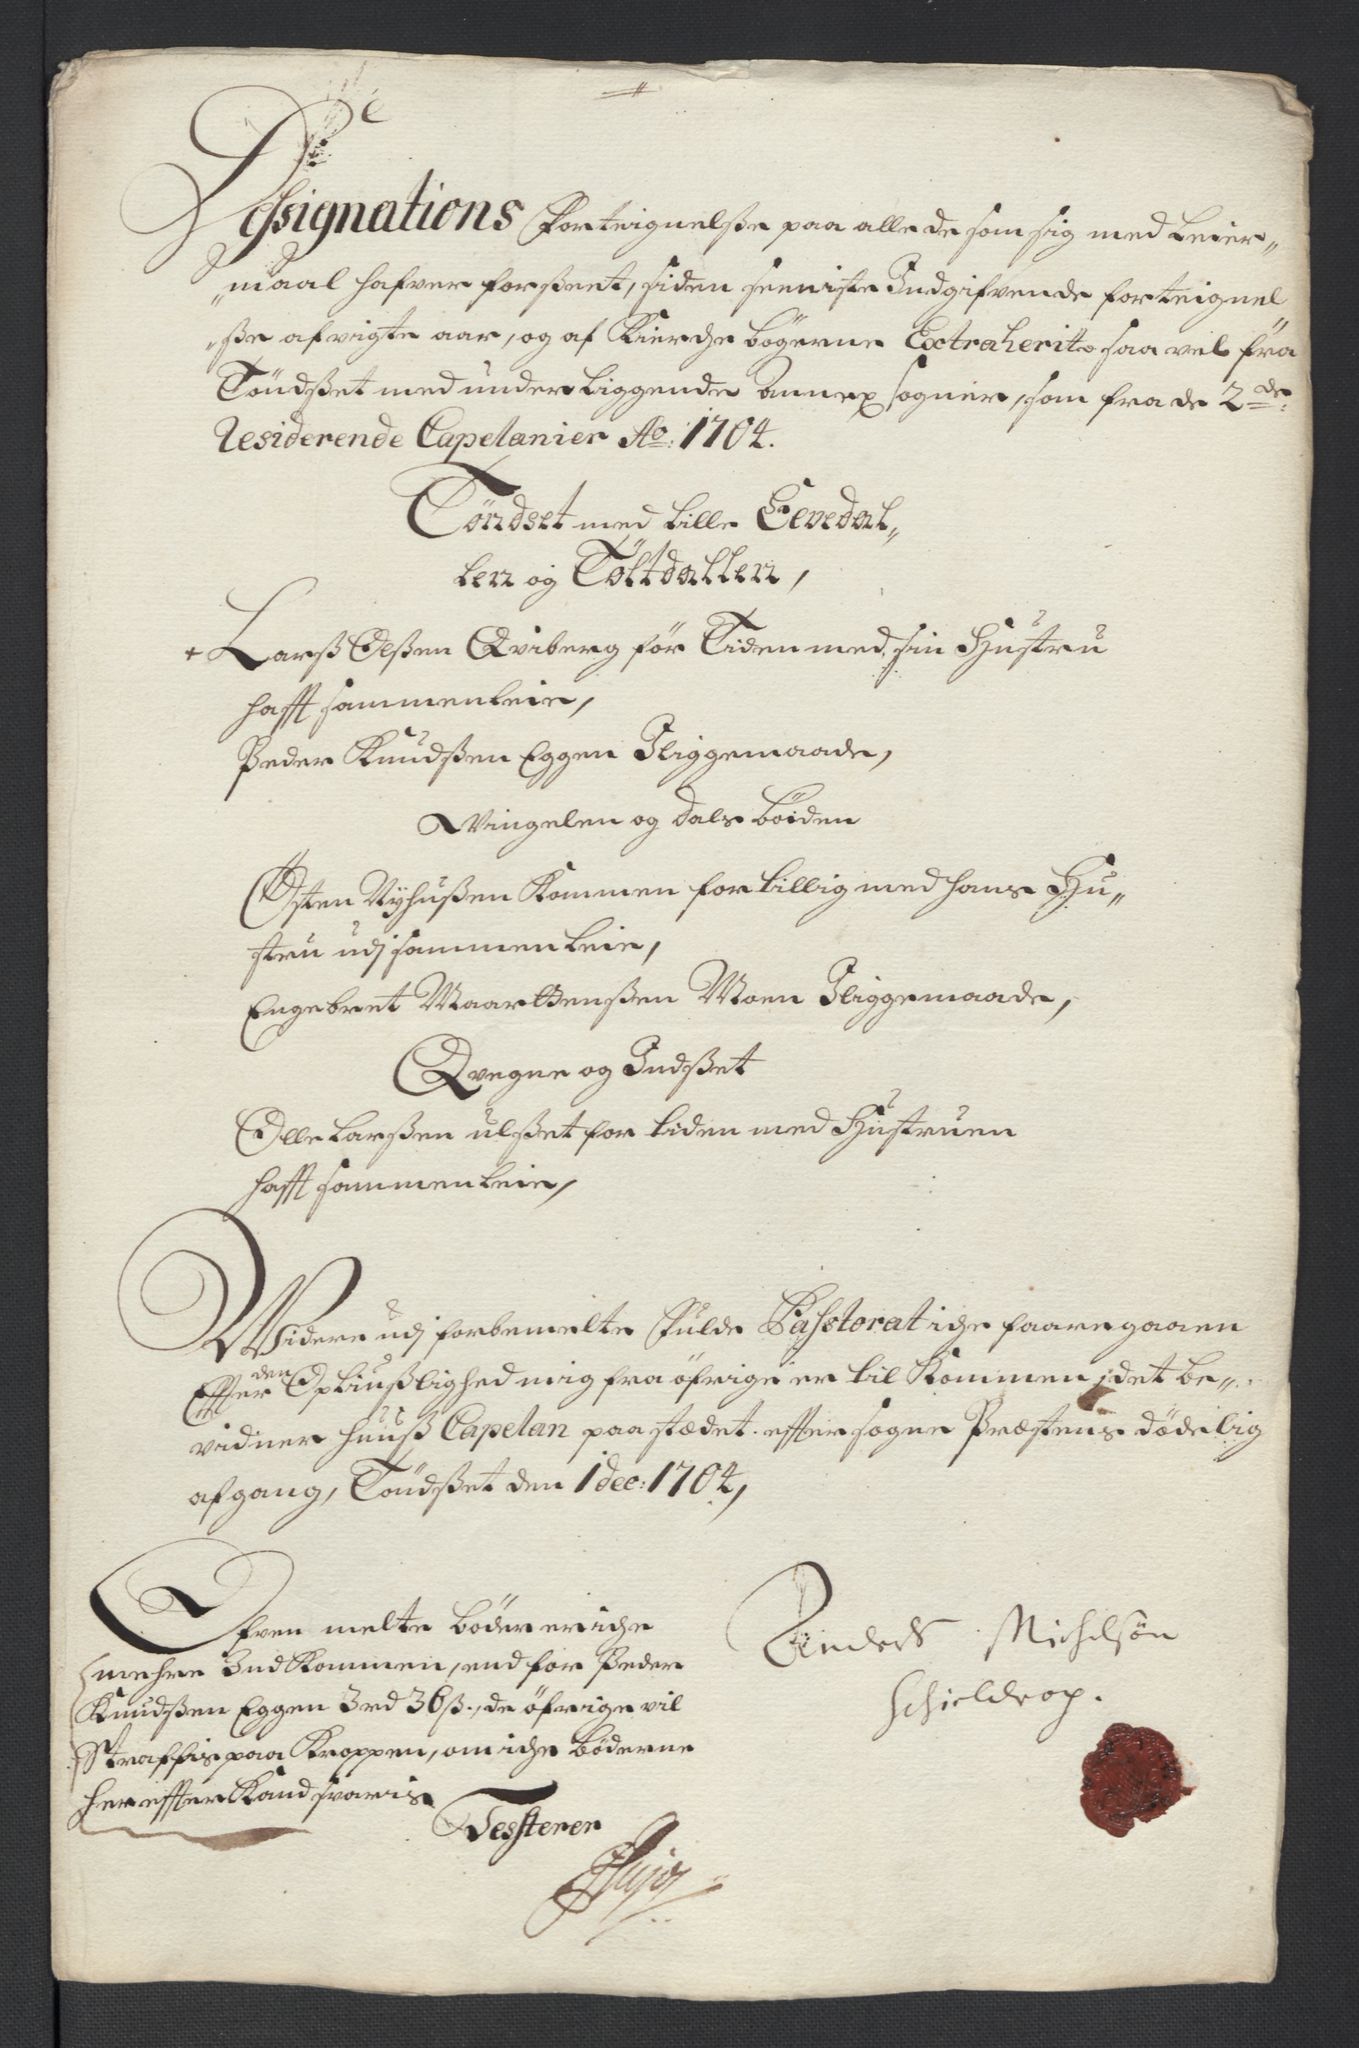 Dessignations Forteignelsse paa alle de som sig med Leier„
„maal hafver forsseet, siden seeniste Indgifvende forteignel
„sse afvigte aar, og af Kierche bögerne Extraherit saa vel fra
Töndsset med underliggende annex sogner, som fra de 2de
Residerende Capelanier Ao: 1704.
Töndset med Lille Elvedal„
len og Tÿltdallen,
+ Larss Olssen Qviberg för Tiden med sin Hustru
hafft sammenleie,
Peder Knudssen Eggen Iliggemaade,
Vingelen og Dals böiden
Østen Nÿhussen kommen for tillig med hans Hu„
stru udj sammenleie,
Engebret Maartenssen Moen Iliggemaade,
Qvegne og Indsset
Olle Larssen ulsset for tiden med Hustruen
hafft sammenleie,
Widere udj forbemelte fulde Passtorat iche faaregaaen
Effter den Opliusslighed mig fra öfrige er til kommen, det be„
vidner huuss Capelan paa stædet effter sogne Præstens dödelig
afgang, Töndsset den 1 dec: 1704,
Ofven melte böder er iche
mehre Indkommen, end for Peder
Knudssen Eggen 3 rd 36 ss., de öfrige vil
Straffis paa Kroppen, om iche böderne
her effter kand svaris
Testerer
Anders Michelsön
Schieldrop.